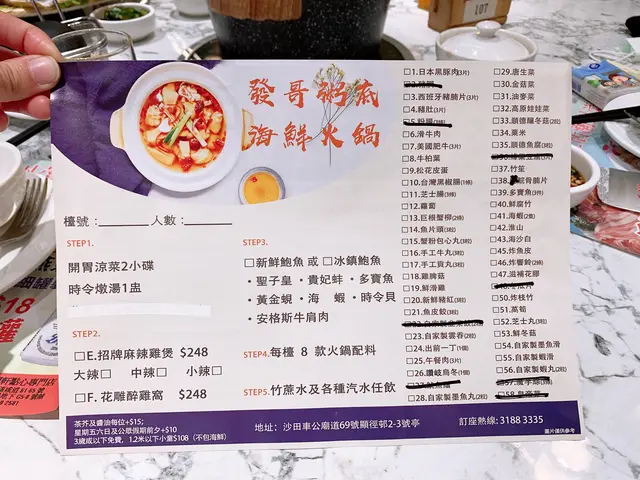 107
發哥粥底
海鮮火鍋
檯號：________ 人數：________
STEP1.
開胃涼菜2小碟
時令燉湯1盅
STEP2.
□E.招牌麻辣雞煲 $248
大辣□ 中辣□ 小辣□
□F.花雕醉雞窩 $248
STEP3.
□新鮮鮑魚 或 □冰鎮鮑魚
・聖子皇・貴妃蚌・多寶魚
・黃金蜆・海 蝦・時令貝
・安格斯牛肩肉
STEP4.每檯 8 款火鍋配料
STEP5.竹蔗水及各種汽水任飲
□1.日本黑豚肉(3片)
□3.西班牙豬腩片(3片)
□4.豬肚(3片)
□6.滑牛肉
□7.美國肥牛(3片)
□8.牛柏葉
□9.松花皮蛋
□10.台灣黑椒腸(1條)
□11.芝士腸(3條)
□12.蘿蔔
□13.巨根蟹柳(2條)
□14.魚片頭(3粒)
□15.蟹粉包心丸(3粒)
□16.手工牛丸(3粒)
□17.手工貢丸(3粒)
□18.雞脾菇
□19.鮮滑雞
□20.新鮮豬紅(3粒)
□21.魚皮餃(3粒)
□23.自家製雲吞(2粒)
□24.出前一丁(1個)
□25.午餐肉(3片)
□26.讚岐烏冬(1個)
□28.自家製墨魚丸(2粒)
□29.唐生菜
□30.金菇菜
□31.油麥菜
□32.高原娃娃菜
□33.順德釀冬菇(2粒)
□34.粟米
□35.順德魚腐(3粒)
□37.竹笙
□39.多寶魚(3件)
□40.鮮腐竹
□41.海蝦(2隻)
□42.淮山
□43.海沙白
□45.炸魚皮
□46.炸響鈴(2條)
□47.滋補花膠
□50.炸枝竹
□51.萵筍
□52.芝士丸(3粒)
□53.鮮冬菇
□54.自家製墨魚滑
□55.自家製蝦滑
□56.自家製蝦丸(2粒)
茶芥及醬油每位+$15;
星期五六日及公眾假期前夕+$10
3歲或以下免費，1.2米以下小童$108（不包海鮮）
地址：沙田車公廟道69號顯徑邨2-3號亭
訂座熱線: 3188 3335
圖片僅供參考